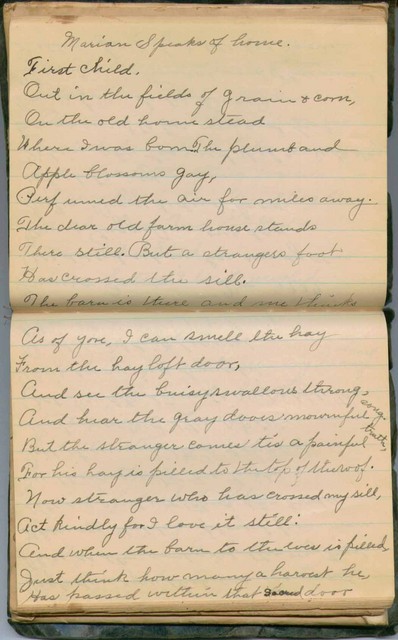 Marian Speaks of home.
First Child.
Out in the fields of grain & corn,
On the old home stead
Where I was born. The plumb and
Apple blossoms gay,
Perfumed the air for miles away.
The dear old farm house stands
There still. But a strangers foot
Has crossed the sill.
The barn is there and me thinks
As of yore, I can smell the hay
From the hay loft door,
And see the buisy swallows throng,
And hear the gray doves mournful song.
But the stranger comes tis a painful truth,
For his hay is pilled to the top of the roof.
Now stranger who has crossed my sill,
Act kindly for I love it still.
And when the barn to the eves is pilled,
Just think how many a harvest he,
Has passed within that Sacred door